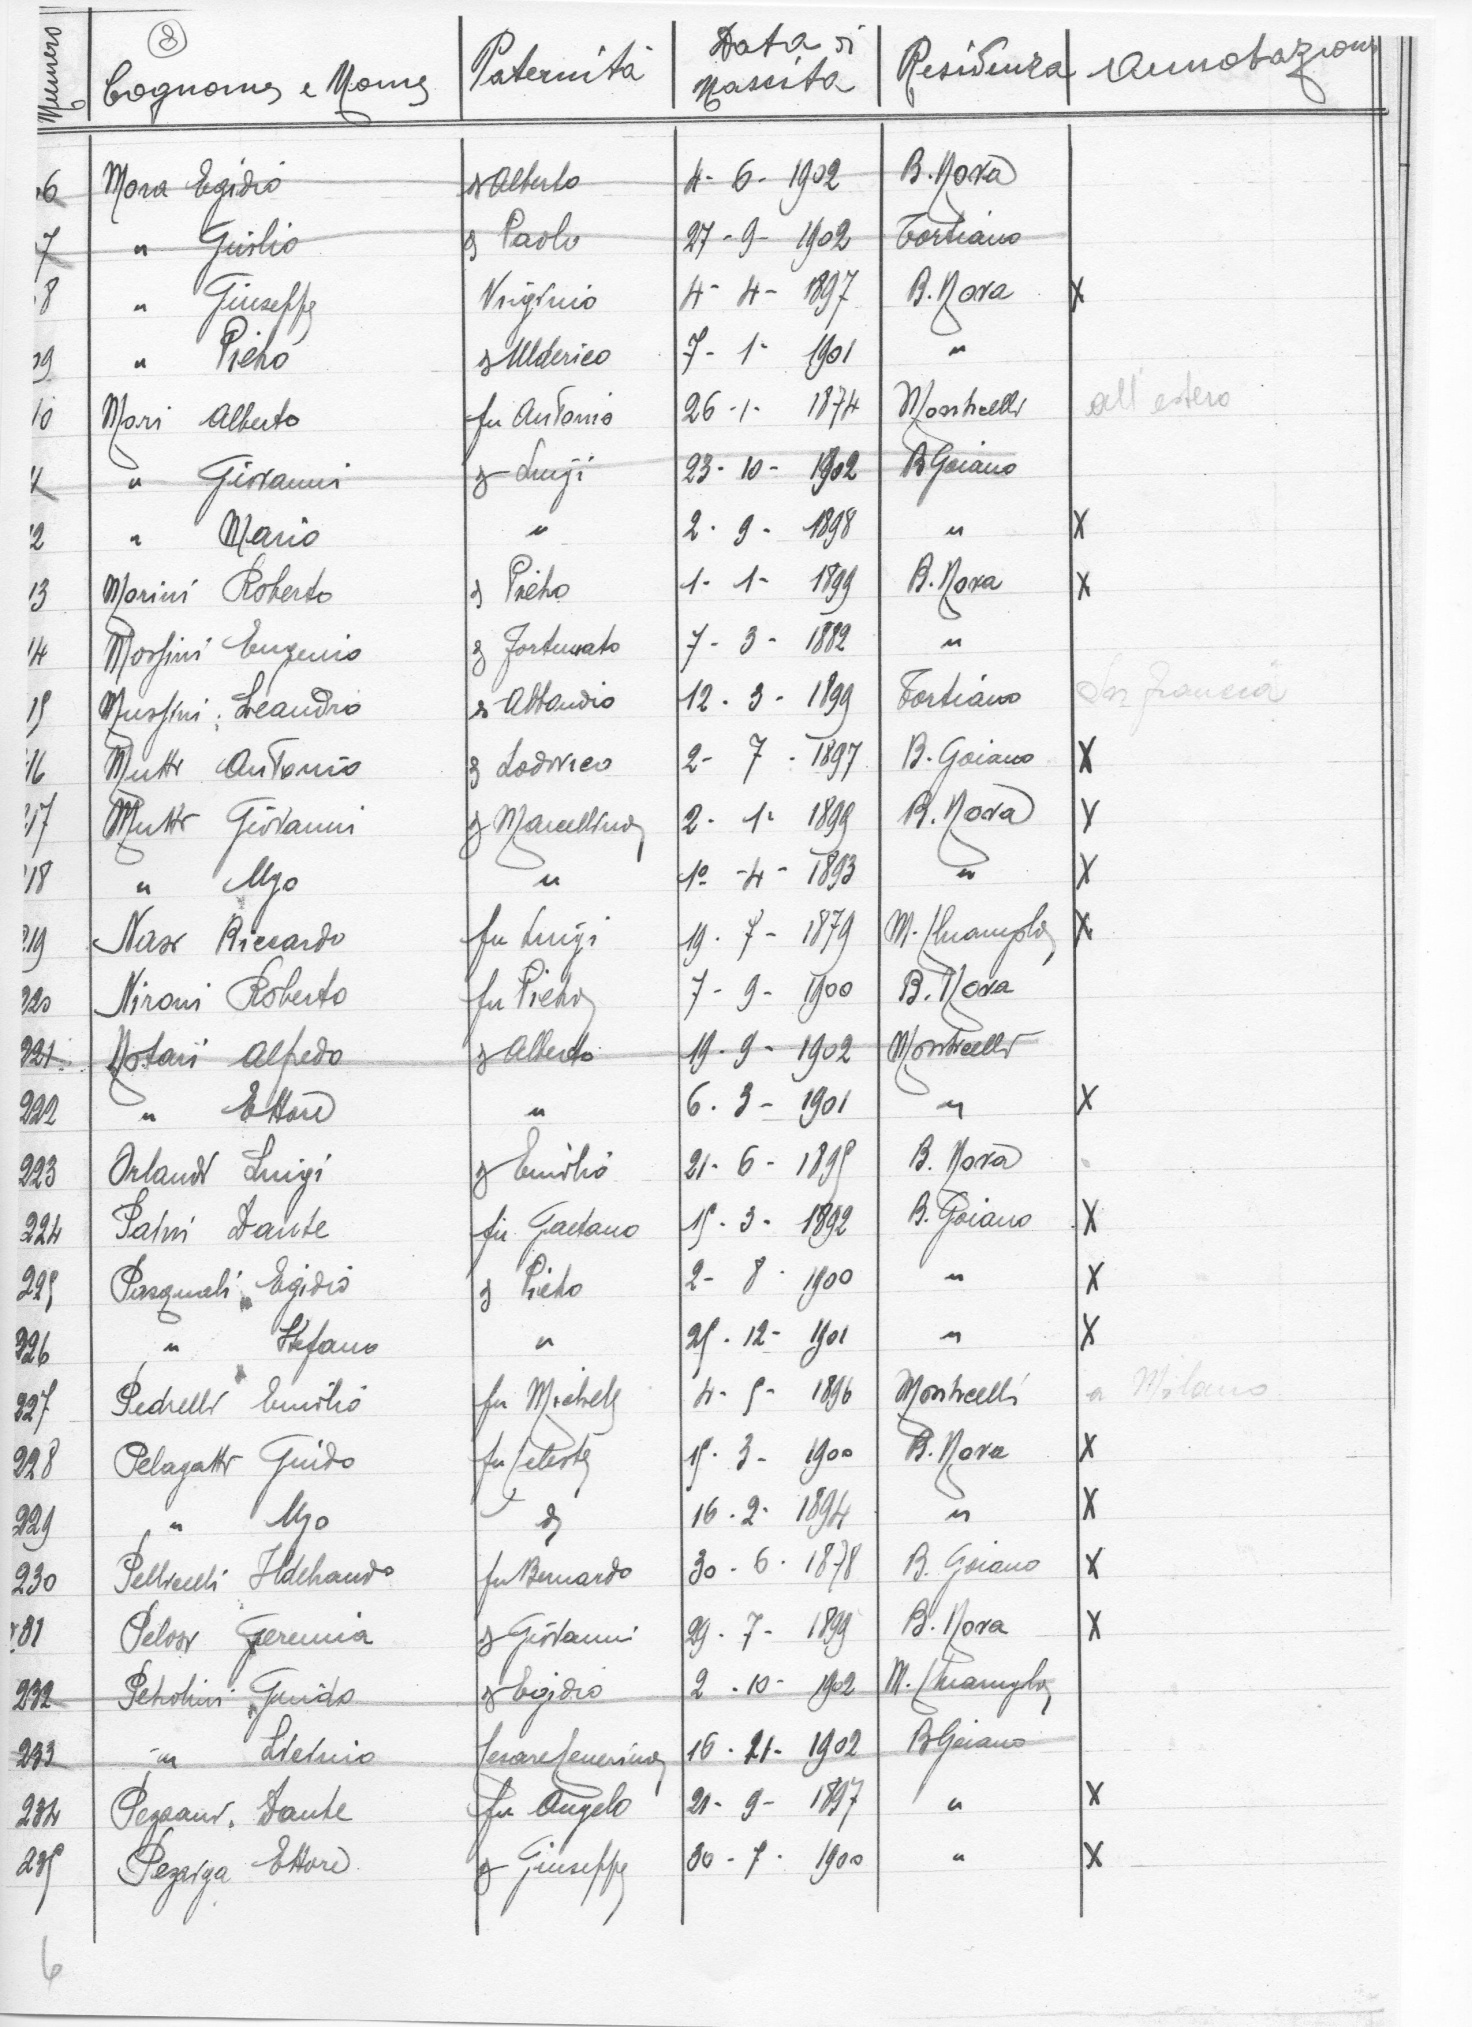 Numero Cognome e Nome Paternità Data di Nascita Residenza Annotazioni
8
6 Mora Egidio di Alberto 4 - 6 - 1902 B. Nova
7 " Giulio di Paolo 27 - 9 - 1902 Fortiano
8 " Giuseppe Virginio 4 - 4 - 1897 B. Nova X
09 " Pietro di Ulderico 7 - 1 - 1901 "
10 Mori Alberto fu Antonio 26 - 1 - 1874 Monticelli all'estero
" Giovanni di Luigi 23 - 10 - 1902 B Goiano
12 " Mario " 2 - 9 - 1898 " X
13 Morini Roberto di Pietro 1 - 1 - 1899 B. Nova X
14 Morsini Eugenio di Fortunato 7 - 3 - 1882 "
15 Mussini Leandro di 12 - 3 - 1899 Fortiano In Francia
16 Mutti Antonio di Lodovico 2 - 7 - 1897 B. Goiano X
217 Mutti Giovanni di Marcellino 2 - 1 - 1899 B. Nova X
218 " Ugo " 1º - 4 - 1893 " X
219 Nasi Riccardo fu Luigi 19 - 7 - 1879 M. X
220 Nironi Roberto fu Pietro 7 - 9 - 1900 B. Nova
221 Notari Alfredo di Alberto 19 - 9 - 1902 Monticelli
222 " Ettore " 6 - 3 - 1901 " X
223 Orlandi Luigi di Emilio 21 - 6 - 1895 B. Nova
224 Patini Dante fu Gaetano 15 - 3 - 1892 B. Goiano X
225 Pasquali Egidio di Pietro 2 - 8 - 1900 " X
226 " Stefano " 25 - 12 - 1901 " X
227 Pedrelli Emilio fu Michele 4 - 5 - 1896 Monticelli a Milano
228 Pelagatti Guido fu Celeste 15 - 3 - 1900 B. Nova X
229 " Ugo " 16 - 2 - 1894 " X
230 Pellicelli Ildebrando fu Bernardo 30 - 6 - 1878 B. Goiano X
231 Pelosi Geremia di Giovanni 29 - 7 - 1899 B. Nova X
232 Petrolini Guido di Egidio 2 - 10 - 1902 M.
233 " Licinio 16 - 21 - 1902 B Goiano
234 Pezzani Dante fu Angelo 21 - 9 - 1897 " X
235 Pezziga Ettore di Giuseppe 30 - 7 - 1900 " X
6